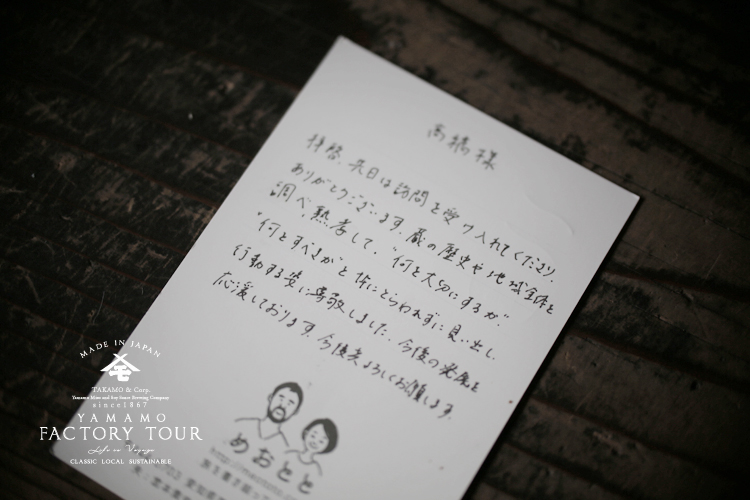 高橋様
拝啓、先日は訪問を受け入れてくださり、
ありがとうございます。蔵の歴史や地域全体を
調べ、熟考して、"何を大切にするか"、
"何をすべきか"と体にとらわれずに見い出し、
行動する姿に尊敬しました。今後の発展を
応援しております。今後共よろしくお願します。
めおとと
MADE IN JAPAN
TAKAMO & Corp.
Yamamo Miso and Soy Sauce Brewing Company
since1867
YAMAMO
FACTORY TOUR
Life is Voyage
CLASSIC LOCAL SUSTAINABLE